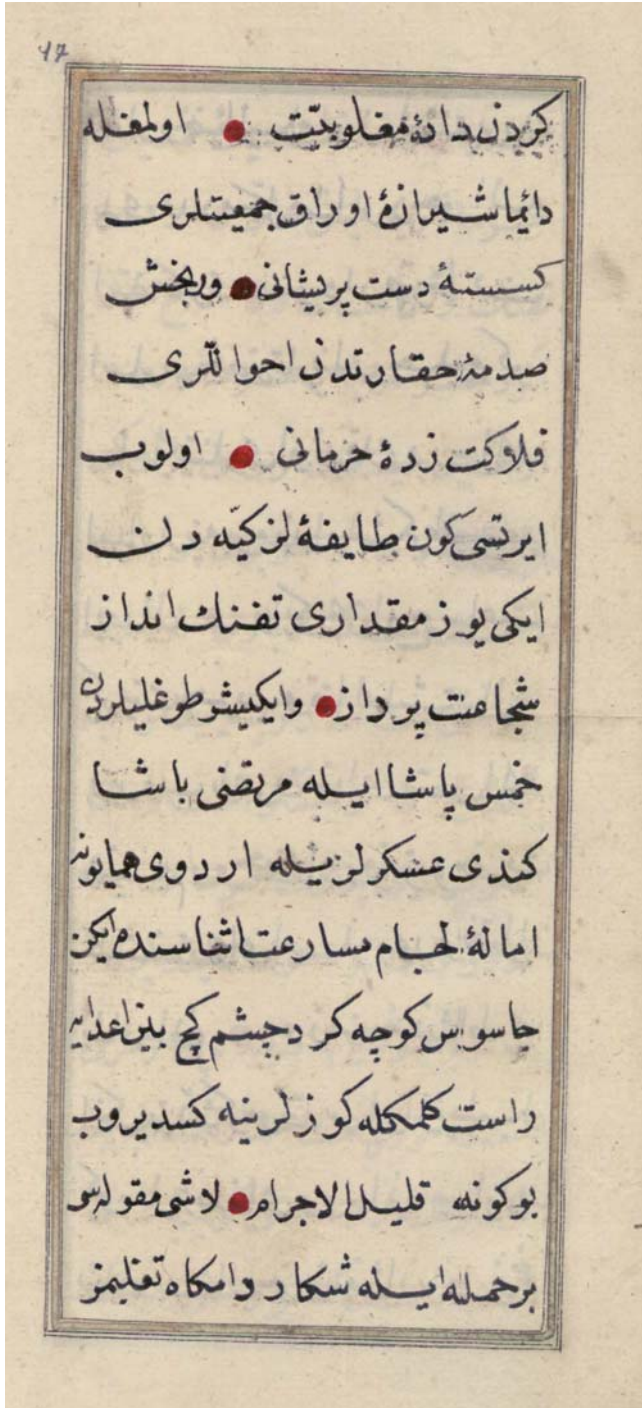 17
كردن دادۀ مغلوبيّت ● اولمغله
دائما شيرازۀ اوراق جمعيتلرى
كسستۀ دست پريشانى ● وربخش
صدمۀ حقارتدن احواللرى
فلاكت زدۀ حرمانى ● اولوب
ايرتسى كون طايفۀ لزكيّه دن
ايكى يوز مقدارى تفنك انداز
شجاعت پرداز ● وايكيشو طوغليلردن
خمس پاشا ايله مرتضى باشا
كندى عسكرلريله اردوى همايونه
امالۀ لجام مسارعت اثناسنده ايكن
جاسوس كوچه كرد چشم كج بين اعدايه
راست كلمكله كوزلرينه كسديروب
بوكونه قليل الاجرام ● لاشى مقولسى
برحمله ايله شكار دامكاه تغلبمز